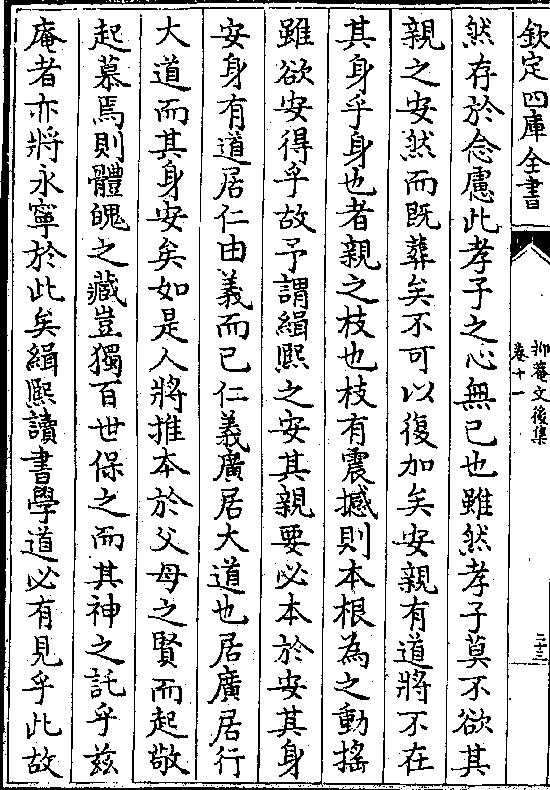 欽定四庫全書
抑菴文後集
卷十一
二十三
然存於念慮此孝子之心無已也雖然孝子莫不欲其
親之安然而既葬矣不可以復加矣安親有道將不在
其身乎身也者親之枝也枝有震撼則本根為之動搖
雖欲安得乎故予謂緝熙之安其親要必本於安其身
安身有道居仁由義而已仁義廣居大道也居廣居行
大道而其身安矣如是人將推本於父母之賢而起敬
起慕焉則體魄之藏豈獨百世保之而其神之託乎兹
庵者亦將永寧於此矣緝熙讀書學道必有見乎此故